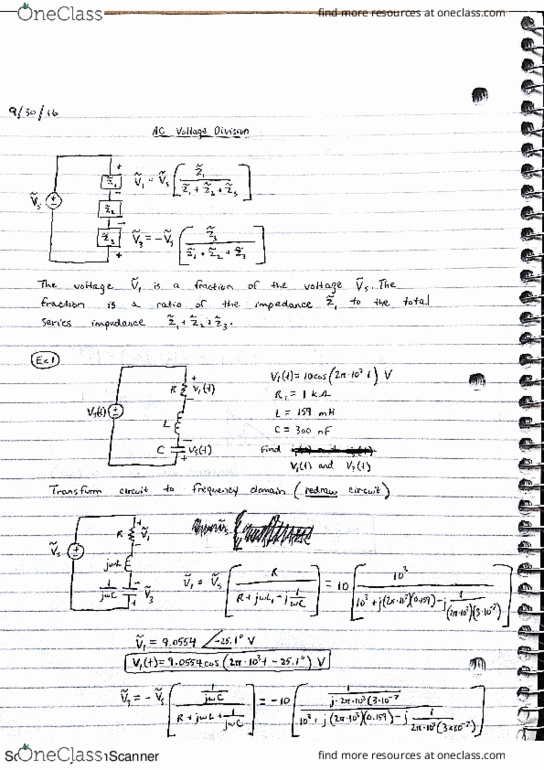 OneClass find more resources at oneclass.com
9/30/16
AC Voltage Division
Ṽs + Z̃1 - Z̃2 - Z̃3 +
Ṽ1 = Ṽs [ Z̃1 / (Z̃1 + Z̃2 + Z̃3) ]
Ṽ3 = -Ṽs [ Z̃3 / (Z̃1 + Z̃2 + Z̃3) ]
The voltage Ṽ1 is a fraction of the voltage Ṽs. The
fraction is a ratio of the impedance Z̃1 to the total
series impedance Z̃1 + Z̃2 + Z̃3.
Ex 1
Vs(t) R + V1(t) - L C - V3(t) +
Vs(t) = 10cos(2π·10³ t) V
R1 = 1 kΩ
L = 159 mH
C = 300 nF
Find
V1(t) and V3(t)
Transform circuit to frequency domain (redraw circuit)
Ṽs R + Ṽ1 - jωL 1/jωC - Ṽ3 +
Ṽ1 = Ṽs [ R / (R + jωL - j 1/ωC) ] = 10 [ 10³ / (10³ + j(2π·10³)(0.159) - j 1/((2π·10³)(3·10⁻⁷))) ]
Ṽ1 = 9.0554 ∠-25.1° V
V1(t) = 9.0554 cos(2π·10³ t - 25.1°) V
Ṽ3 = -Ṽs [ (1/jωC) / (R + jωL + 1/jωC) ] = -10 [ (1/(j·2π·10³(3·10⁻⁷))) / (10³ + j(2π·10³)(0.159) - j 1/(2π·10³(3×10⁻⁷))) ]
OneClass Scanner find more resources at oneclass.com